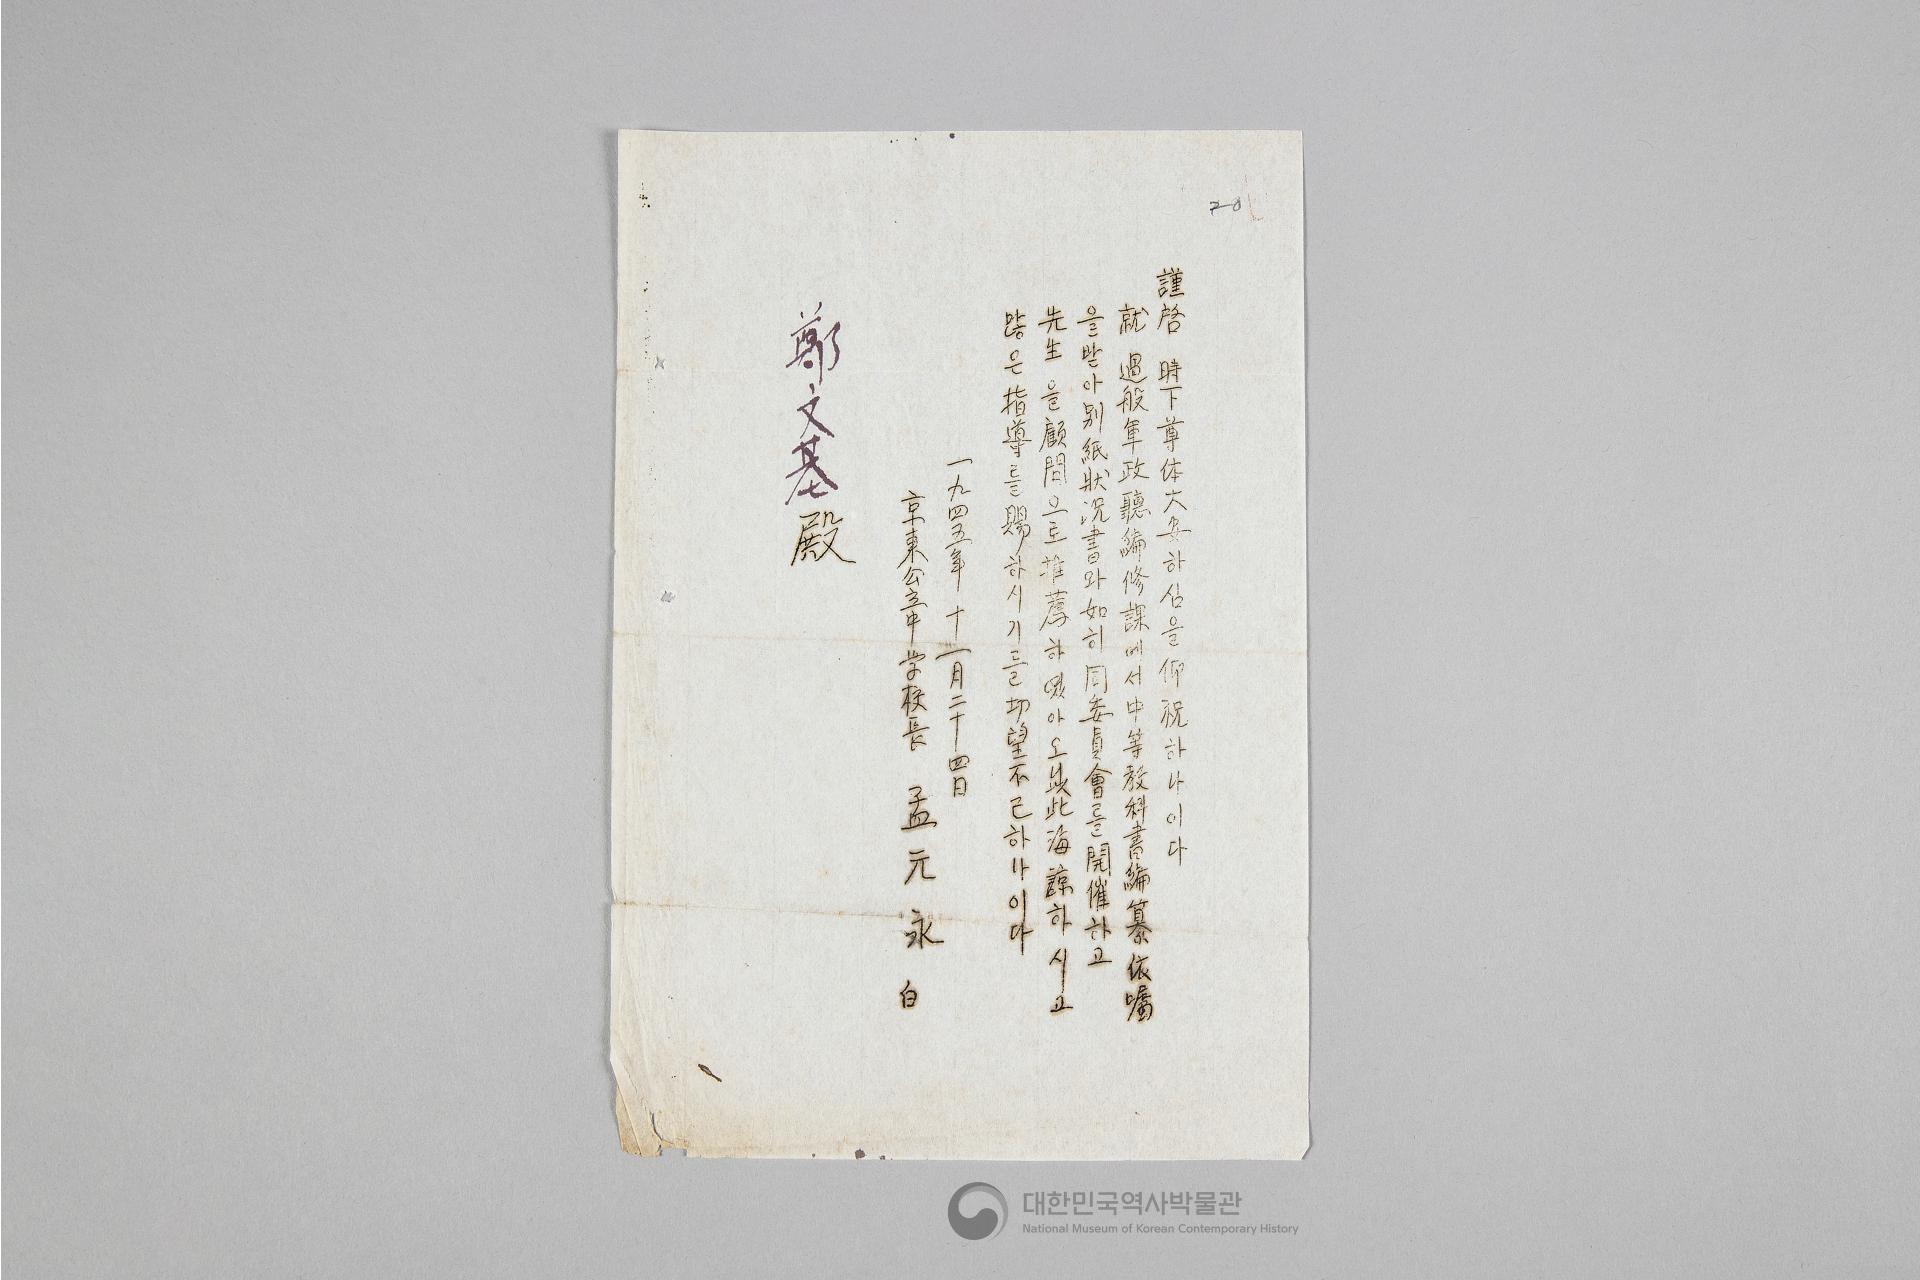 謹啓 時下尊体大安하심을仰祝하나이다
就 過般軍政聽編修課에서中等敎科書編纂依囑
을받아別紙狀况書와如히同委員會를開催하고
先生을顧問으로推薦하였아오니此海諒하시고
많은指導를賜하시기를切望不已하나이다
一九四五年 十一月二十四日
京東公立中学校長 孟元永 白
鄭文基殿
대한민국역사박물관
National Museum of Korean Contemporary History